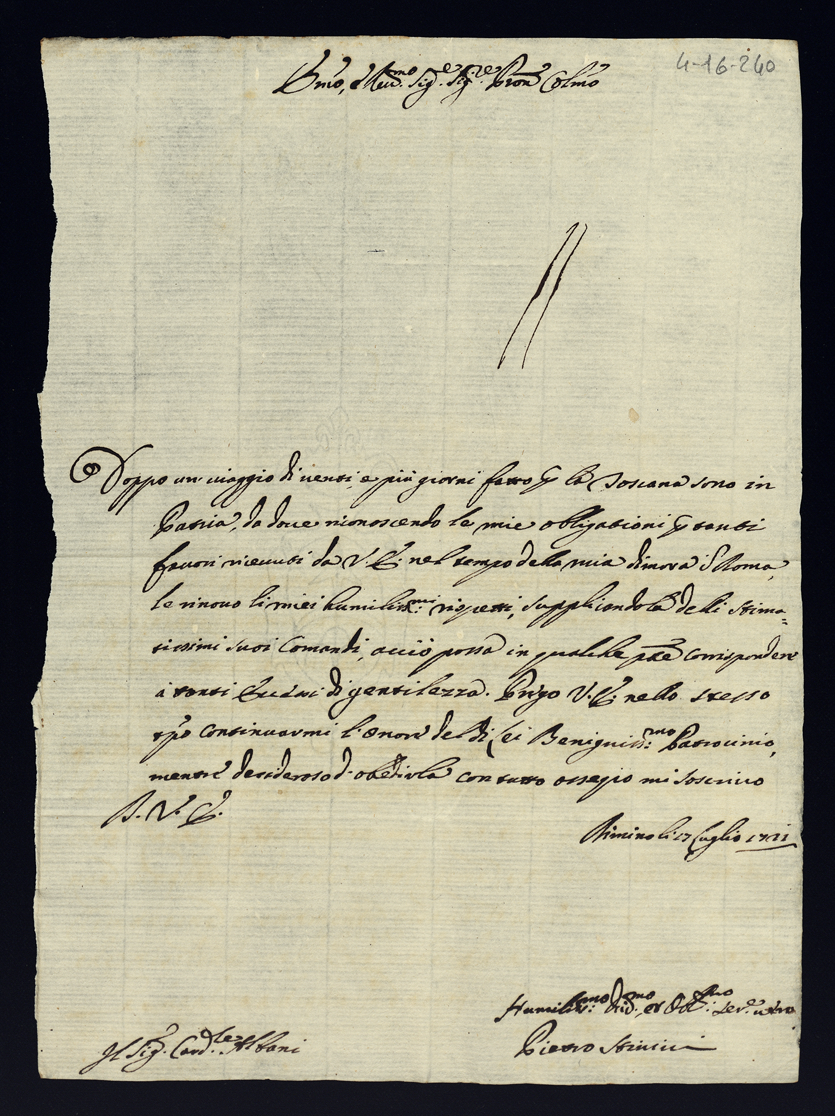 4-16-240
Em̄o, e Reu.mo Sig.e Sig.re Pron̄ Colm̄o
Doppo un uiaggio di uenti, e più giorni fatto p la Toscana sono in
Patria, da doue riconoscendo le mie obligationi p tanti
fauori riceuuti da V. E. nel tempo della mia dimora i Roma,
le rinouo li miei humilissmi: rispetti, supplicandola delli stima=
tissimi suoi Comandi, acciò possa in qualche pte corrispondere
à tanti di gentilezza. Prego V. E. nello stesso
tpo continuarmi l'onore del di lei Beniguiss:mo Patrocinio,
mentre desideroso d'obedirla con tutto ossequio mi soscriuo
D. V. E.
Rimino li 17 Luglio 1721
Humiliss:mo Diu:mo et Obl:mo Ser.e uero
Il Sig.r Card.le Albani
Pietro